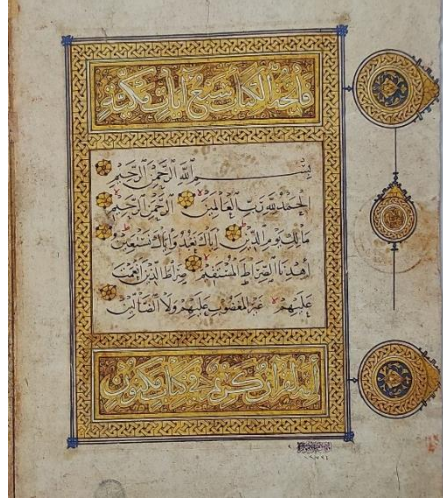 فاتحة الكتاب سبع آيات مكية
بِسْمِ اللَّهِ الرَّحْمَٰنِ الرَّحِيمِ
الْحَمْدُ لِلَّهِ رَبِّ الْعَالَمِينَ الرَّحْمَٰنِ الرَّحِيمِ
مَالِكِ يَوْمِ الدِّينِ إِيَّاكَ نَعْبُدُ وَإِيَّاكَ نَسْتَعِينُ
اهْدِنَا الصِّرَاطَ الْمُسْتَقِيمَ صِرَاطَ الَّذِينَ أَنْعَمْتَ
عَلَيْهِمْ غَيْرِ الْمَغْضُوبِ عَلَيْهِمْ وَلَا الضَّالِّينَ
إنه لقرآن كريم في كتاب مكنون